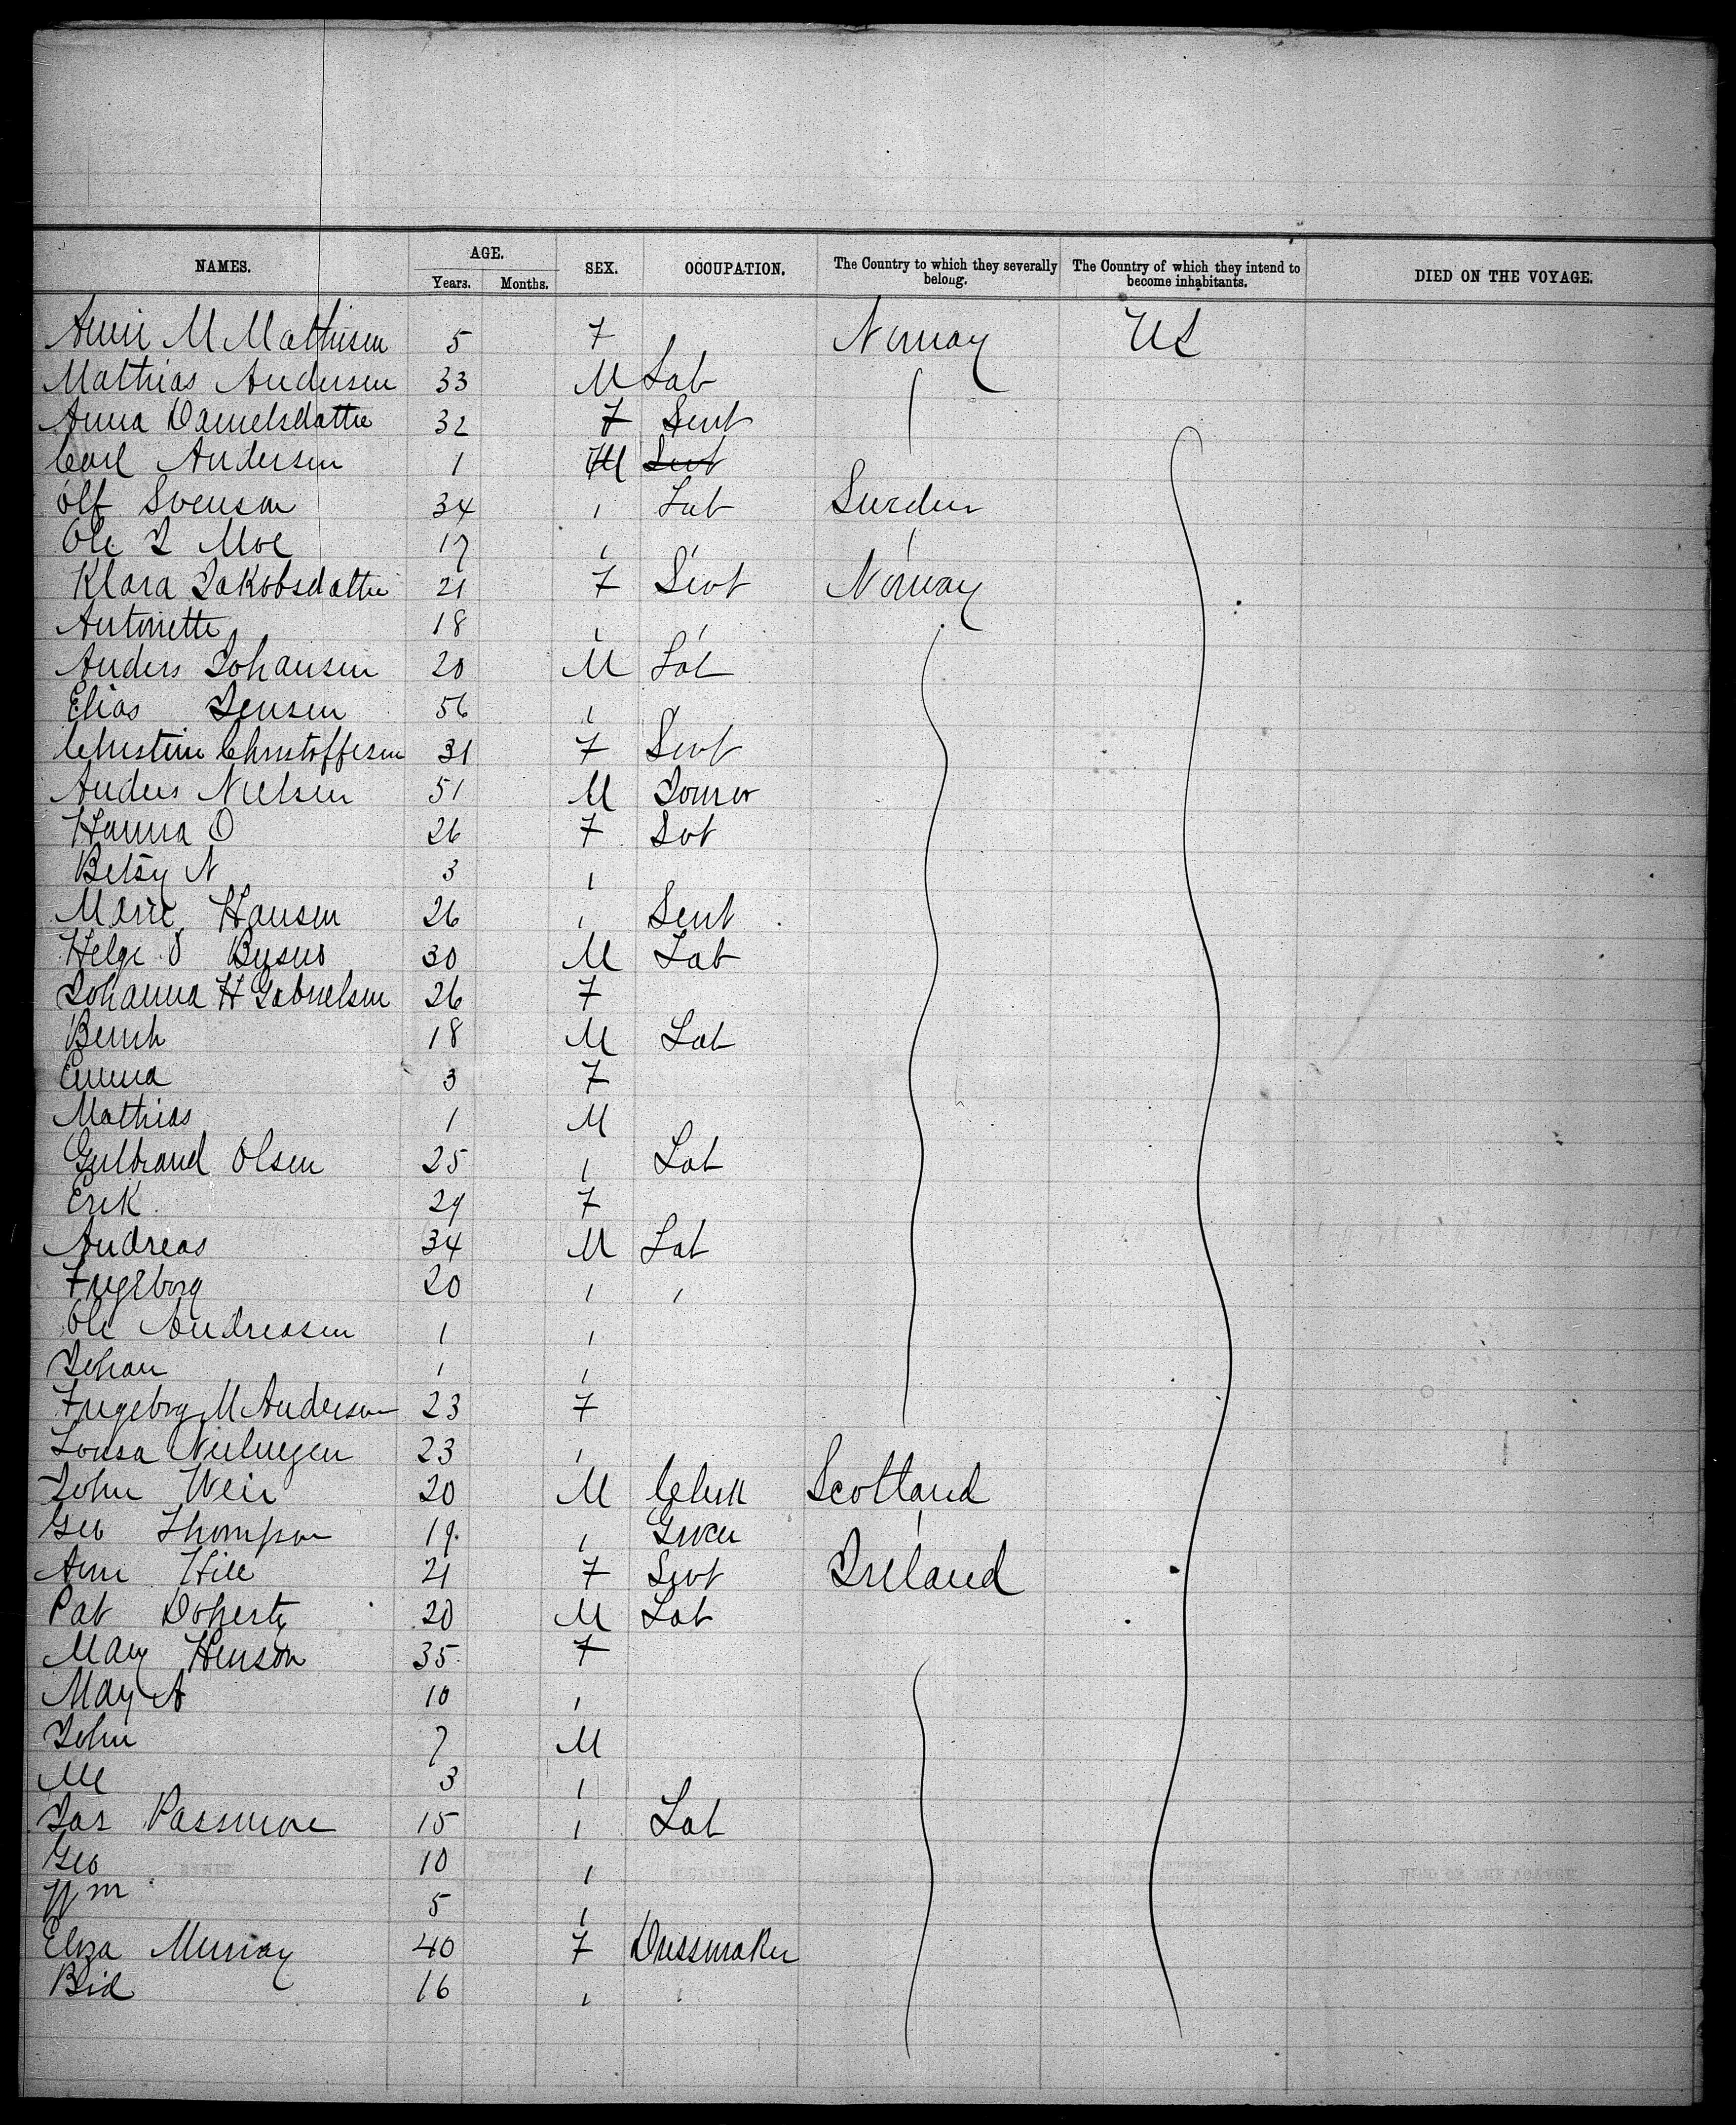 NAMES. AGE. SEX. OCCUPATION. The Country to which they severally belong. The Country of which they intend to become inhabitants. DIED ON THE VOYAGE.
Years. Months.
M Mathisen 5 F Norway US
Mathias Andersen 33 M Lab
Anna Danielsdatter 32 F Servt
Carl Andersen 1 M Servt
Olf Svenson 34 " Lab Sweden
Ole I Moe 17 " "
Klara Jakobsdatter 21 F Servt Norway
Antonette 18 " "
Anders Johansen 20 M Lab
Elias Jensen 56 "
Christine Christoffersen 31 F Servt
Anders Nielsen 51 M
Hanna O 26 F Svt
Betsy N 3 "
Marie Hansen 26 " Servt
Helge 30 M Lab
Johanna H Gabrielsen 26 F
18 M Lab
Emma 3 F
Mathias 1 M
Gulbrand Olsen 25 " Lab
Erik 29 F
Andreas 34 M Lab
Ingeborg 20 " "
Ole Andreasen 1 "
Johan 1 "
Ingeborg M Anderson 23 F
Lousa 23 "
John Weir 20 M Clerk Scotland
Geo Thompson 19 " Grocer "
Ann Hill 21 F Servt Ireland
Pat Doherty 20 M Lab
Mary Henson 35 F
May A 10 "
John 7 M
3 "
Jas Passmore 15 " Lab
Geo 10 "
Wm 5 "
Eliza Murray 40 F Dressmaker
Bid 16 " "